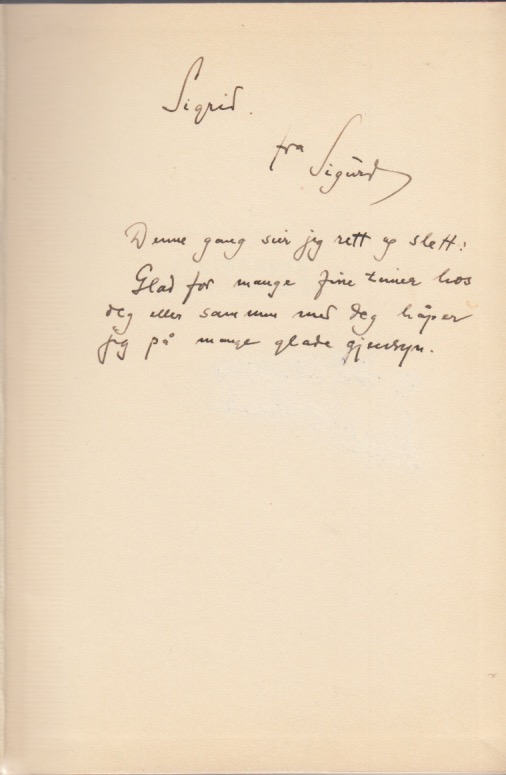 Sigrid.
fra Sigurd
Denne gang sier jeg rett og slett:
Glad for mange fine timer hos
deg eller sammen med deg håper
jeg på mange glade gjensyn.